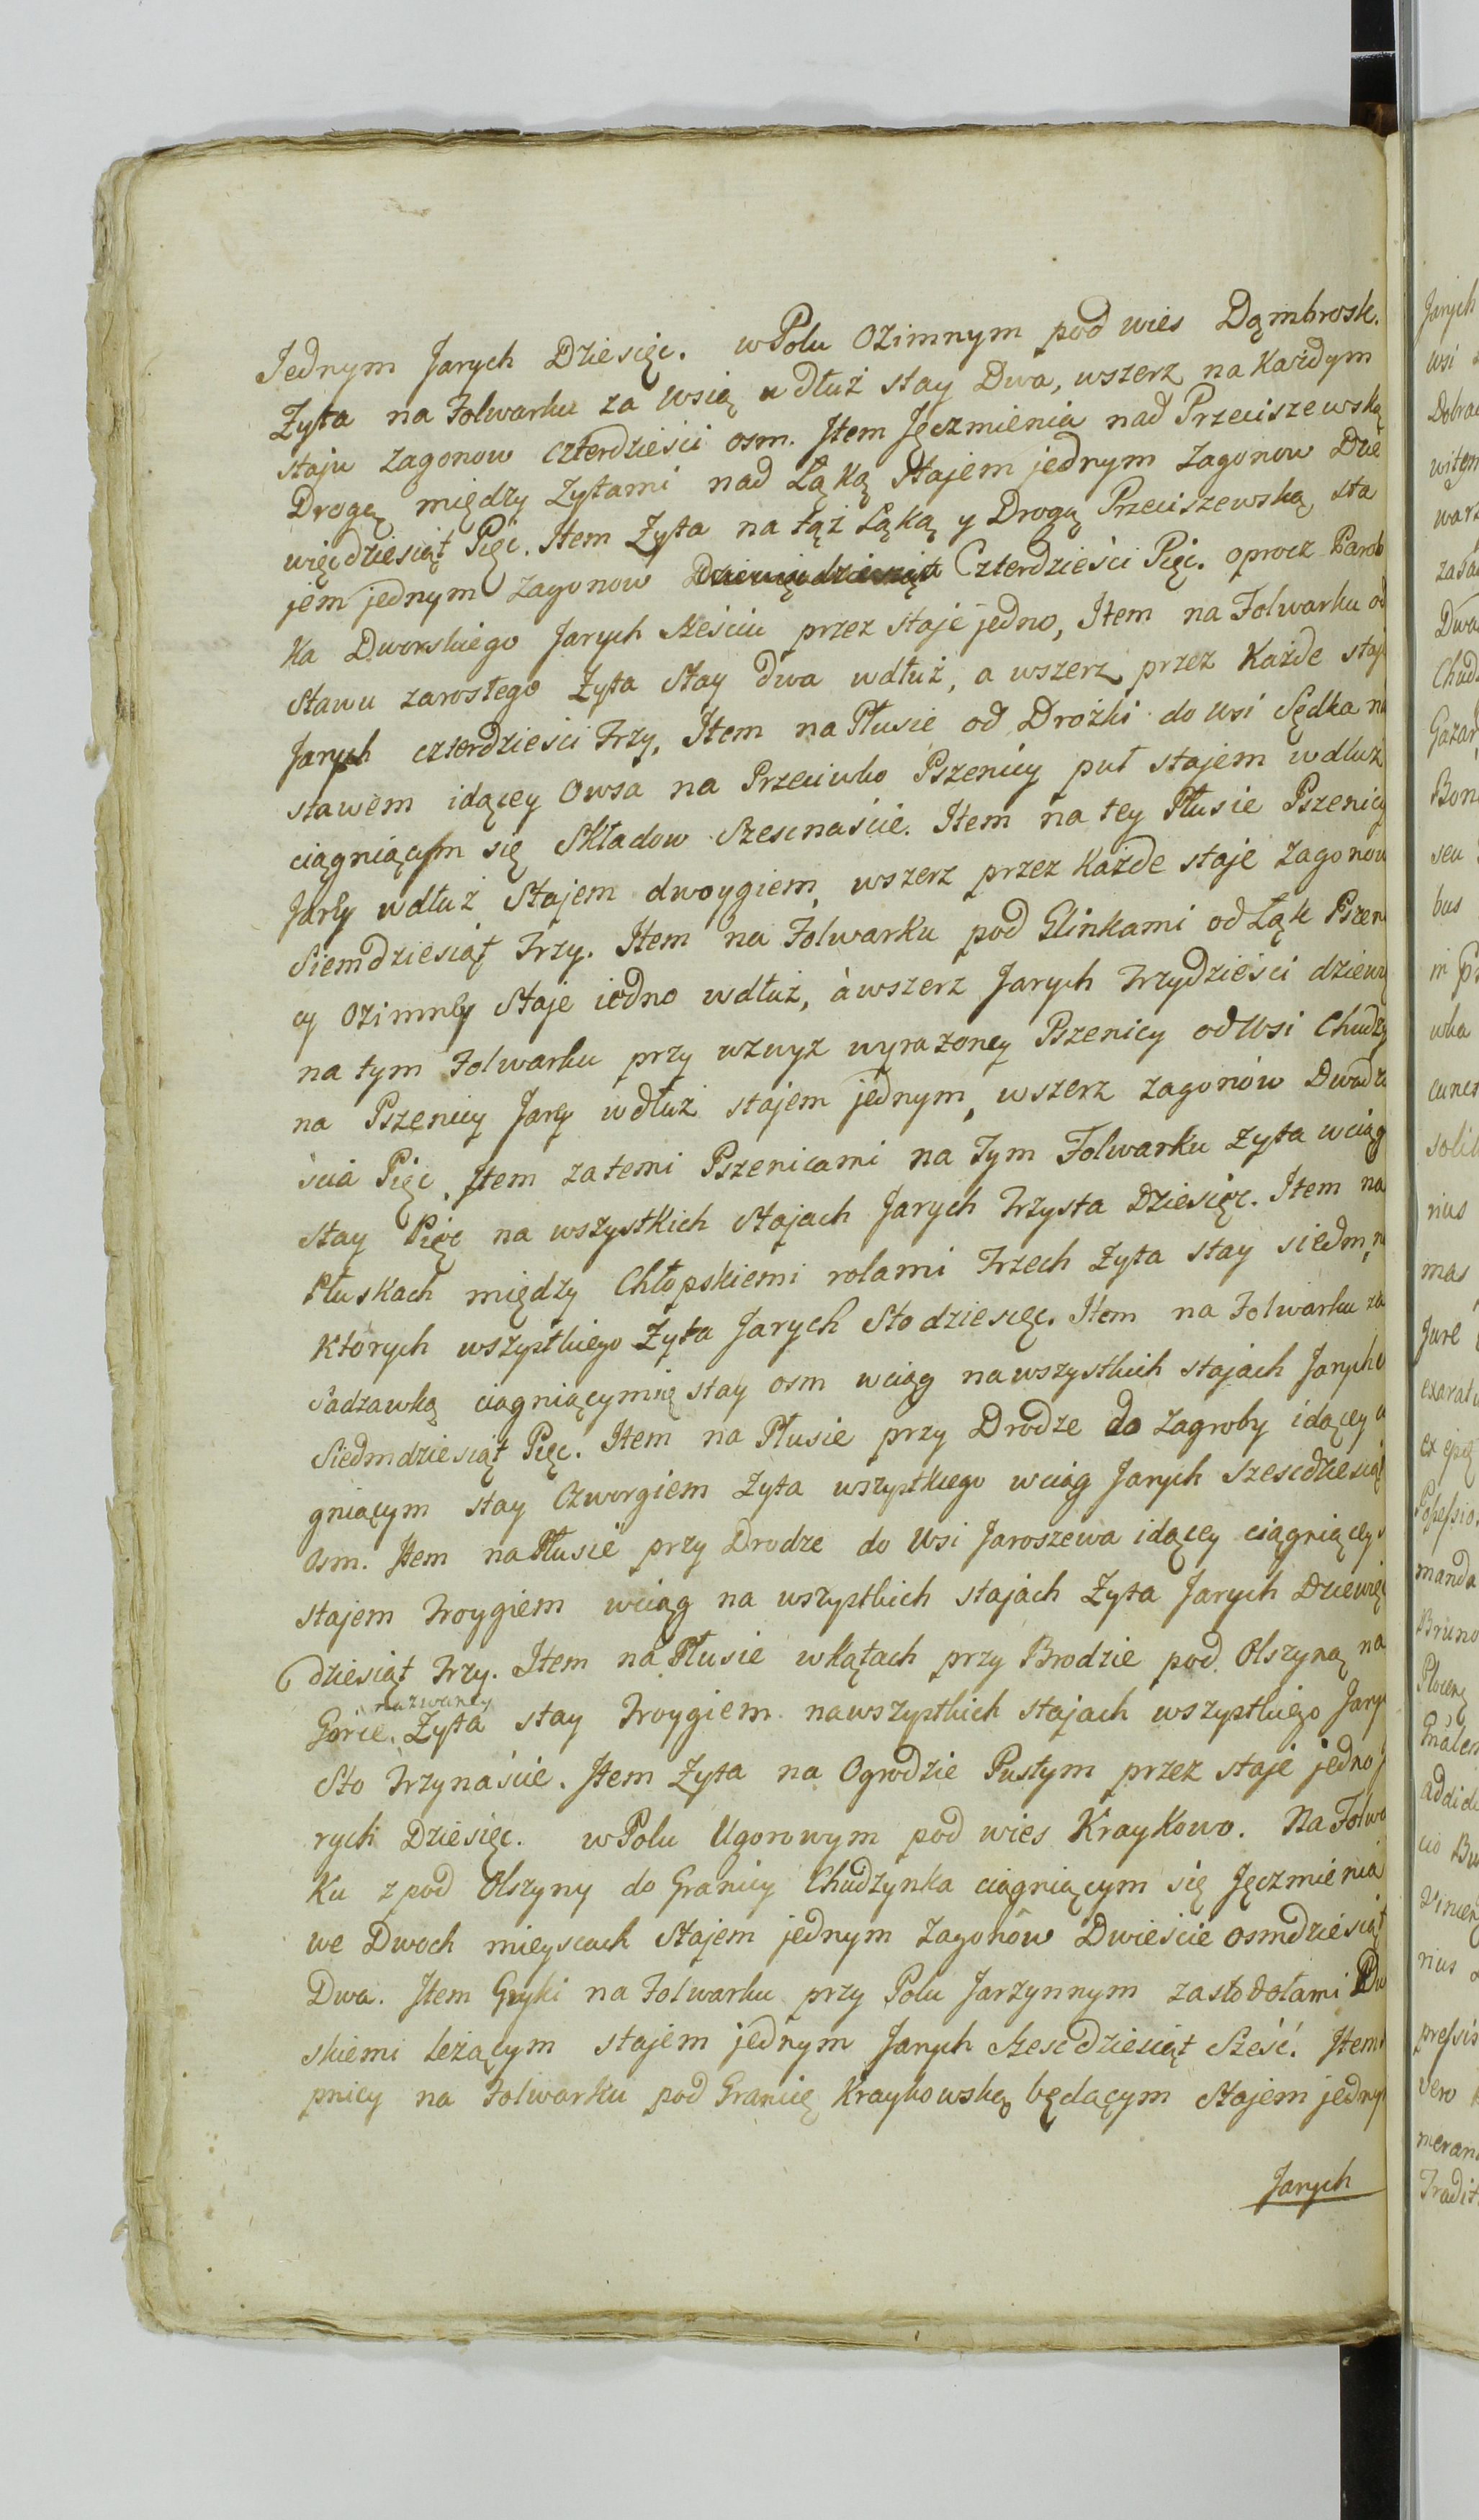 Jednym Jarych Dziesięc. w Polu Ozimnym pod wies Dąmbrosk.
Zyta na Folwarku za wsią w dłuż stay Dwa, wszerz na Każdym
staju zagonow czterdzieści osm. Item Jęczmienia nad Przeciszewską
Drogą między Zytami nad Łąką Stajem jednym zagonow Dzie
więcdziesiąt Pięc. Item Zyta na tąż Łąką y Drogą Przeciszewską, sta
jem jednym zagonow Dziewięcdziesiąt Czterdzieści Pięc. oprocz Parob
ka Dworskiego Jarych Sześciu przez staje jedno, Item na Folwarku od
stawu zarosłego Zyta stay dwa wdłuż, a wszerz przez Każde staj
Jarych czterdzieści Trzy, Item na Płusie od Drożki do wsi Sędka na
stawem idącey Owsa na Przeciwko Pszenicy puł stajem wdłuż
ciągniącym się Składow Szesnaście. Item na tey Płusie Pszenicy
Jarey wdłuż Stajem dwoygiem, wszerz przez Każde staje zagonow
Siemdziesiąt Trzy. Item na Folwarku pod Glinkami od Łąk Pszeni
cy Ozimney Staje iedno wdłuż, a wszerz Jarych Trzydzieści dziewię
na tym Folwarku przy wzwyz wyrazoney Pszenicy od Wsi Chudzy
na Pszenicy Jarey wdłuż stajem jednym, wszerz zagonów Dwadzie
ścia Pięc, Item za temi Pszenicami na Tym Folwarku Zyta wciąg
stay Pięc na wszystkich Stajach Jarych Trzysta Dziesięc. Item na
Płuskach między Chłopskiemi rolami Trzech Zyta stay siedm, n
Których wszystkiego Zyta Jarych Sto dziesięc. Item na Folwarku za
Sadzawką ciągniącym się stay osm wciąg na wszystkich stajach Jarych
Siedmdziesiąt Pięc. Item na Płusie przy Drodze do Zagroby idącey
gniącym stay Czworgiem Zyta wszystkiego wciąg Jarych Szescdziesiąt
Osm. Item na Płusie przy Drodze do Wsi Jaroszewa idącey ciągniącey
stajem Troygiem wciąg na wszystkich stajach Zyta Jarych Dziewięć
dziesiąt Trzy. Item na Płusie w kątach przy Brodzie pod Olszyną na
nazwaney
Górie. Zyta stay Troygiem na wszystkich stajach wszystkiego Jary
Sto Trzynaście. Item Zyta na Ogrodzie Pustym przez staje jedno J
rych Dziesięc. w Polu Ugorowym pod wies Kraykowo. Na Folwa
Ku z pod Olszyny do Granicy Chudzynka ciągniącym się Jęczmienia
we Dwoch mieyscach Stajem jednym Zagonów Dwieście Osmdziesiąt
Dwa. Item Gryki na Folwarku przy Polu Jarzynnym za stodołami Dw
skiemi leżącym stajem jednym Jarych Szescdziesiąt Sześć. Item
pnicy na Folwarku pod Granicę Kraykowską będącym Stajem jedny
Jarych
Jarych
wsi
Dobra
witem
warz
Dwa
Chudz
Gazar
Bon
seu
bus
in
wka
solid
rius
mas
Jure
exarat
manda
Bruno
addid
rius
vero
Tradit